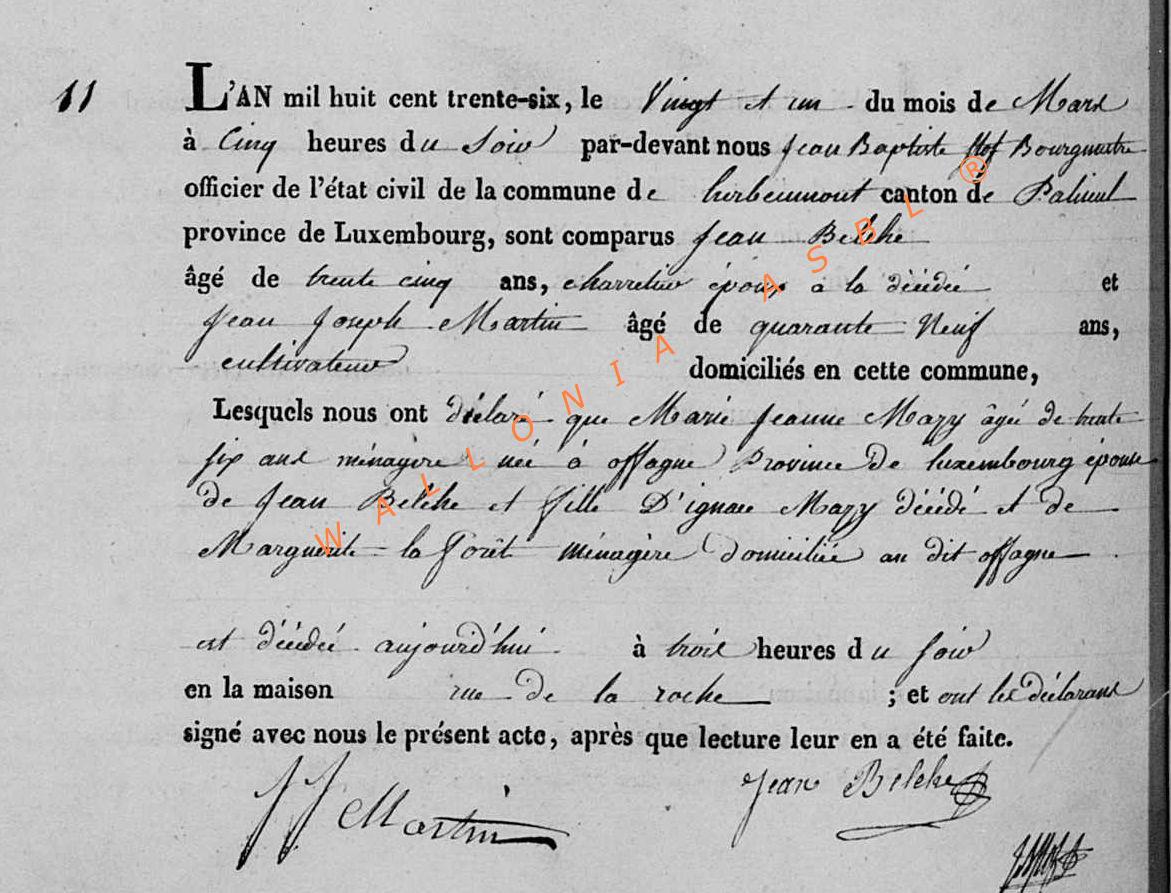 11
L'AN mil huit cent trente-six, le Vingt et un du mois de Mars
à Cinq heures du Soir par-devant nous Jean Baptiste Bourgmestre
officier de l'état civil de la commune de herbeumont canton de Paliseul
province de Luxembourg, sont comparus Jean Belche
âgé de trente cinq ans, charretier époux à la décédée et
Jean Joseph Martin âgé de quarante Neuf ans,
cultivateur domiciliés en cette commune,
Lesquels nous ont déclaré que Marie Jeanne Mazy âgée de trente
six ans ménagère née à offagne Province de luxembourg épouse
de Jean Belche et fille D'ignace Mazy décédé et de
Marguerite la forêt ménagère domiciliée au dit offagne
est décédée aujourd'hui à trois heures du soir
en la maison rue de la roche ; et ont les déclarans
signé avec nous le présent acte, après que lecture leur en a été faite.
JJ Martin Jean Belche
WALLONIA ASBL ®